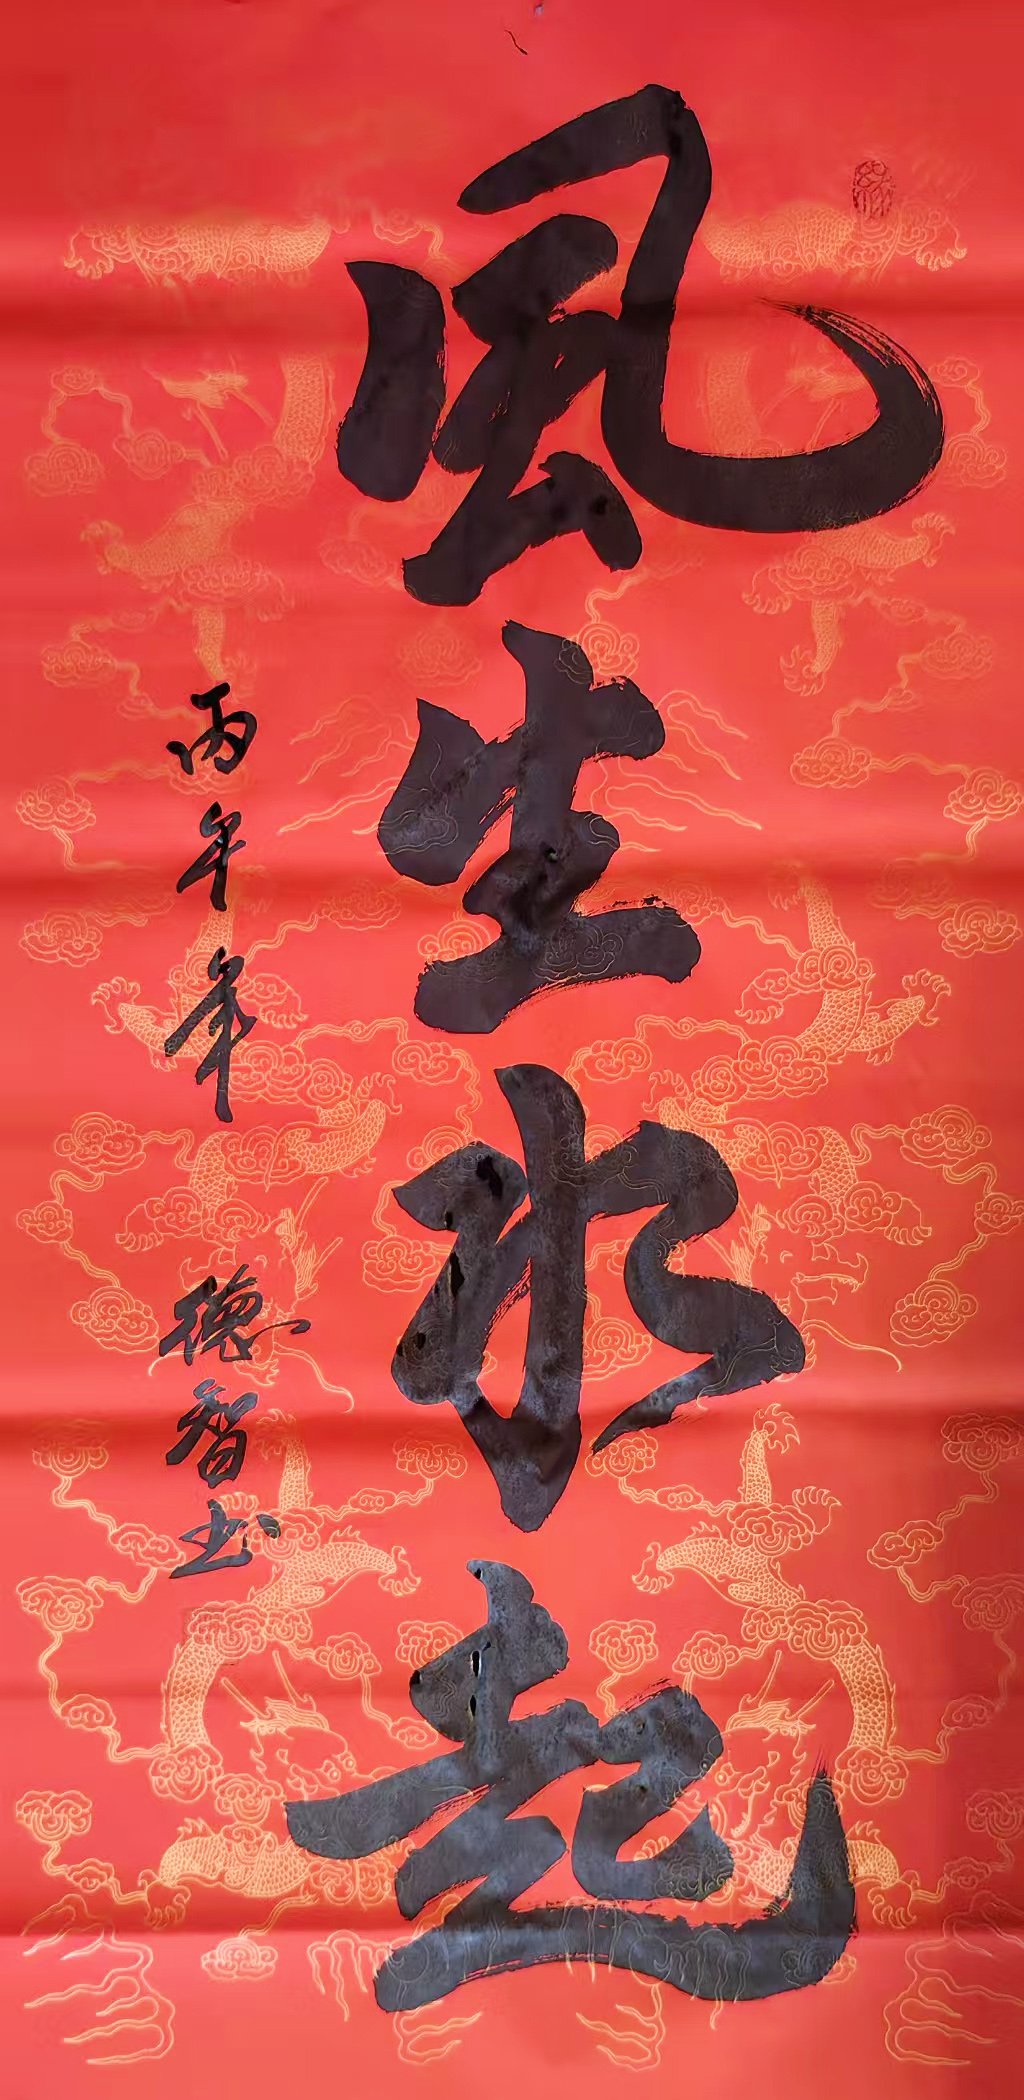 風生水起
丙午年 德智书